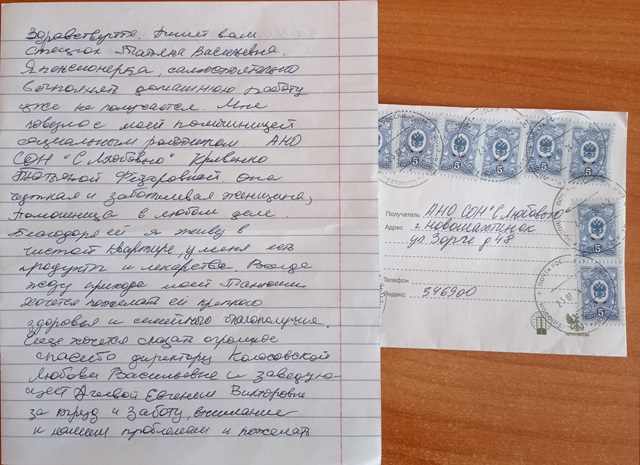 Здравствуйте. Пишет вам
Татьяна Васильевна.
Я пенсионерка, самостоятельно
выполнять домашнюю работу
уже не получается. Мне
повезло с моей помощницей
социальным работником АНО
СОН "С Любовью" Кривенко
Татьяной Фёдоровной она
чуткая и заботливая женщина,
помощница в любом деле.
Благодаря ей я живу в
чистой квартире, у меня есть
продукты и лекарства. Всегда
жду прихода моей Танюши
хочется пожелать ей крепкого
здоровья и семейного благополучия.
Ещё хочется сказать огромное
спасибо директору Колосовской
Любови Васильевне и заведую
щей Евгении Викторовне
за труд и заботу, внимание
к нашим проблемам и пожелать
5 5 5 5 5
5
5
Получатель АНО СОН "С Любовью"
Адрес г. Новошахтинск
ул Зорге д 48
Телефон
Индекс 346900